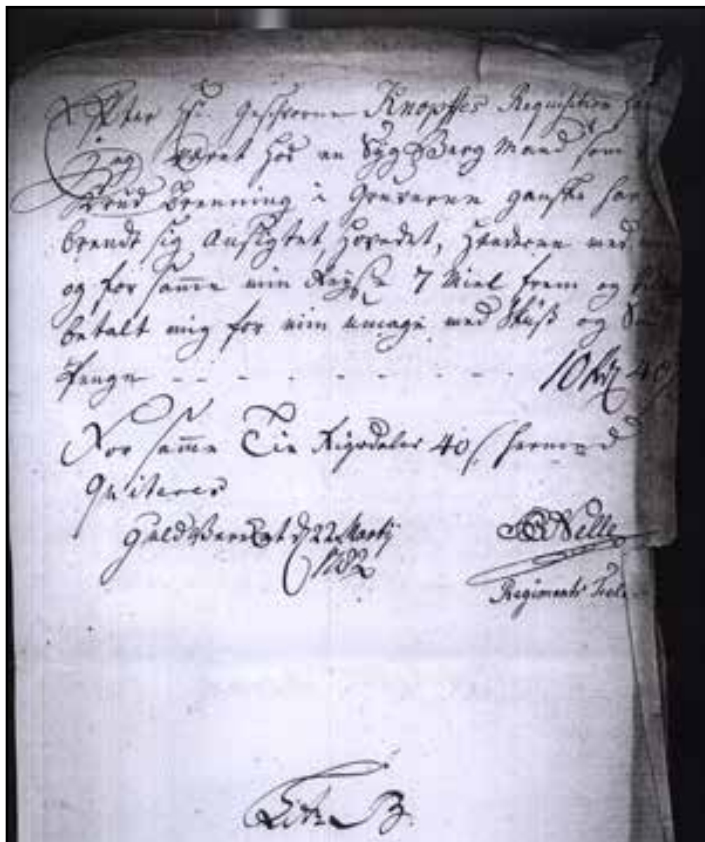 Efter Hr. Geschworne Knopffes Requisition
Jeg været hos en Syg Berg Mand som
Krud Brenning i Gruverne ganske har
brendt sig Ansigtet, Hovedet, Henderne med
og for samme min Reyse 7 Miel frem og
betalt mig for min umage med Skyds og
Penge - - - - - - - - 10 Rd 40
For samme Tie Rigsdaler 40 s hermed
Qviteres
Guld Verket d 22 Martj

Velle
Regiments
Lit: B.